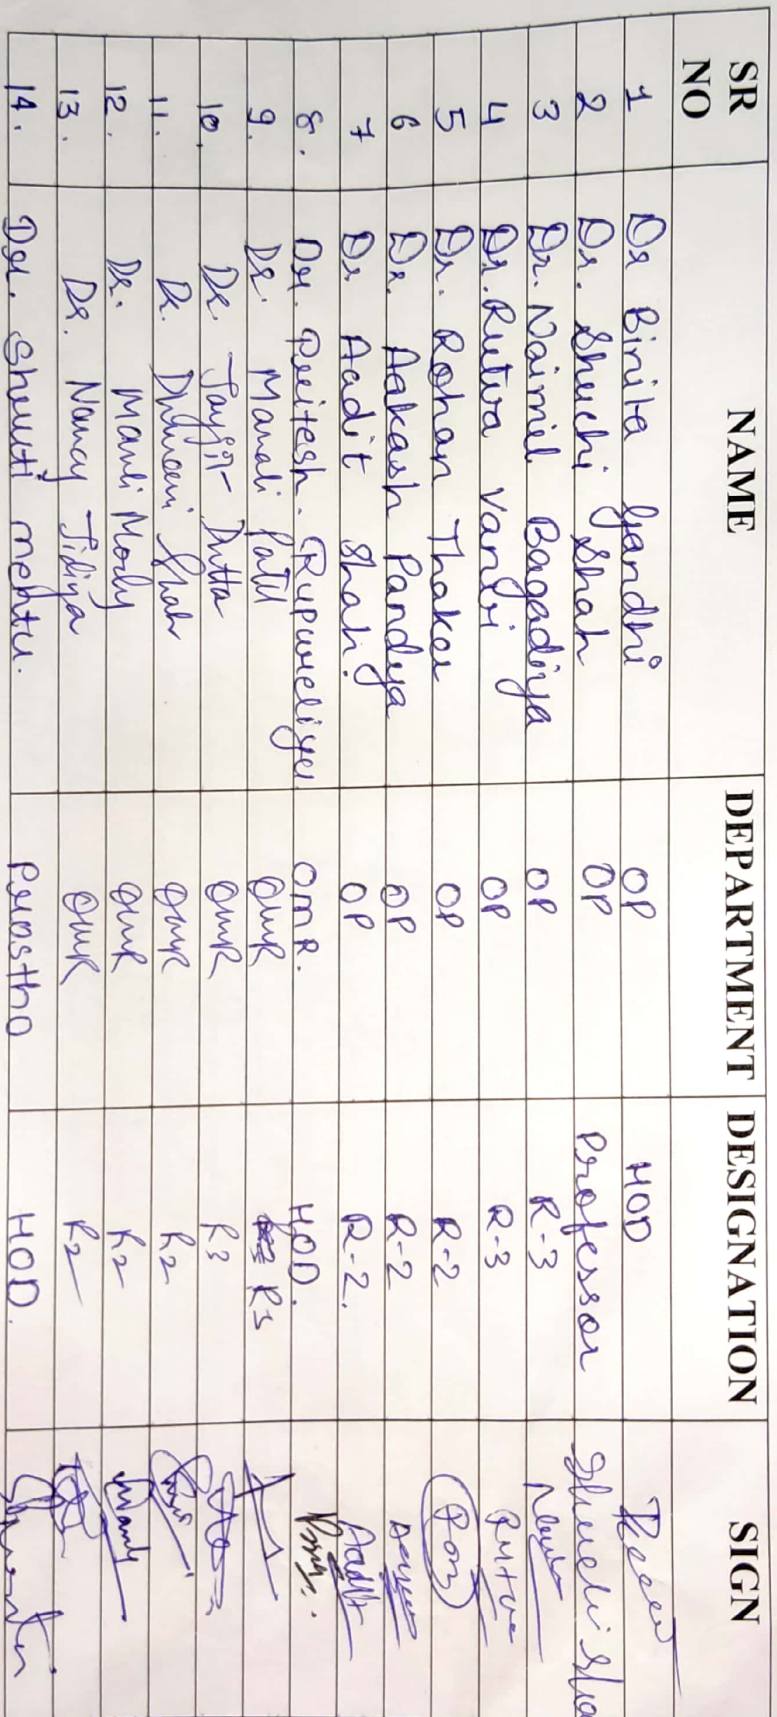 SR NO NAME DEPARTMENT DESIGNATION SIGN
1 Dr Binita Gandhi OP HOD
2 Dr. Shuchi Shah OP Professor Shuchi Sha
3 Dr. Naimil Bagadiya OP R-3
4 Dr. Rutva Vanvi OP R-3 Rutva
5 Dr. Rohan Thaker OP R-2
6 Dr. Aakash Pandya OP R-2
7 Dr Aadit Shah. OP R-2. Aadit
8. Dr. Pritesh. Rupareliya OMR. HOD.
9. Dr. Manali Patil OMR R3
10. Dr. Dutta OMR R3
11. Dr. Dhwani Shah OMR R2
12. Dr. Manli Mody OMR R2 Manly
13. Dr. Nancy Jidiya OMR R2
14. Dr. Shruti Mehta. Prostho HOD. Shruti